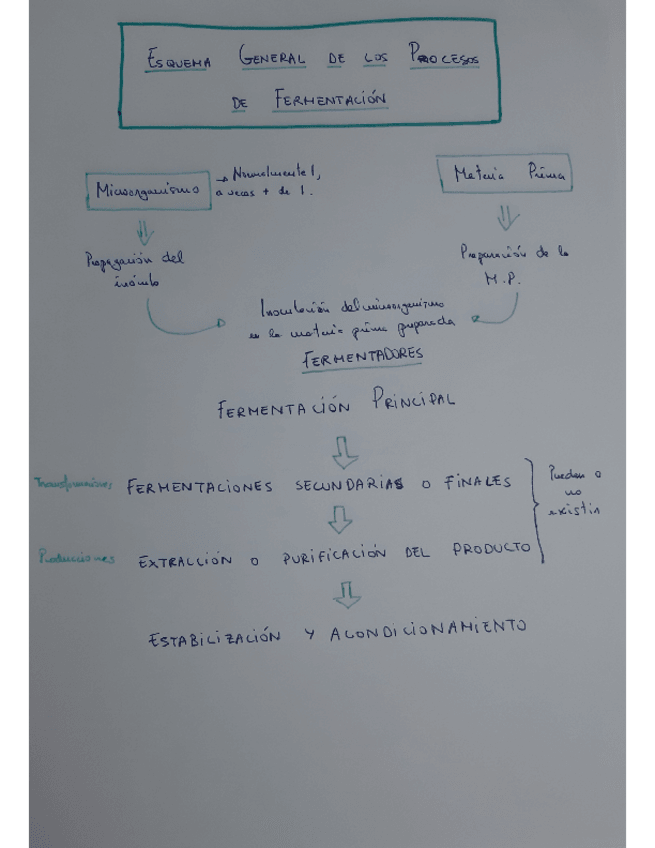 ESQUEMA GENERAL DE LOS PROCESOS
DE FERMENTACIÓN
Microorganismo
→ Normalmente 1,
a veces + de 1.
Materia Prima
Propagación del
inóculo
Preparación de la
M.P.
Inoculación del microorganismo
en la materia prima preparada
FERMENTADORES
FERMENTACIÓN PRINCIPAL
Transformaciones
FERMENTACIONES SECUNDARIAS O FINALES
Pueden o
no
existir
Producciones
EXTRACCIÓN O PURIFICACIÓN DEL PRODUCTO
ESTABILIZACIÓN Y ACONDICIONAMIENTO